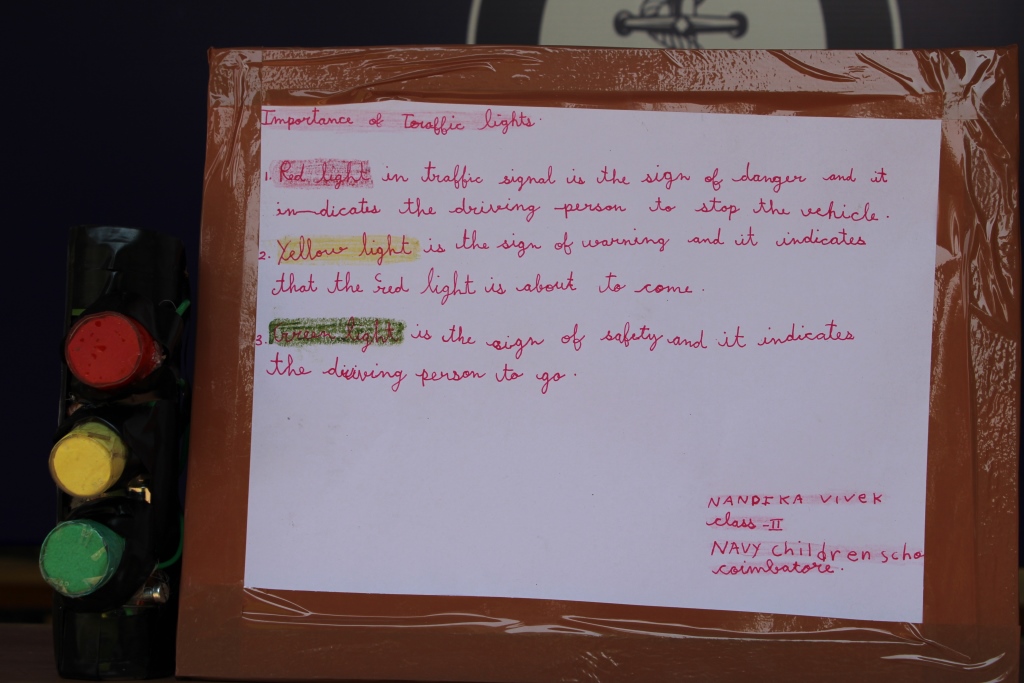 Importance of Traffic lights.
1. Red light in traffic signal is the sign of danger and it
in-dicates the driving person to stop the vehicle.
2. Yellow light is the sign of warning and it indicates
that the red light is about to come.
3. Green light is the sign of safety and it indicates
the driving person to go.
NANDIKA VIVEK
class-II
NAVY children scho
coimbatore.